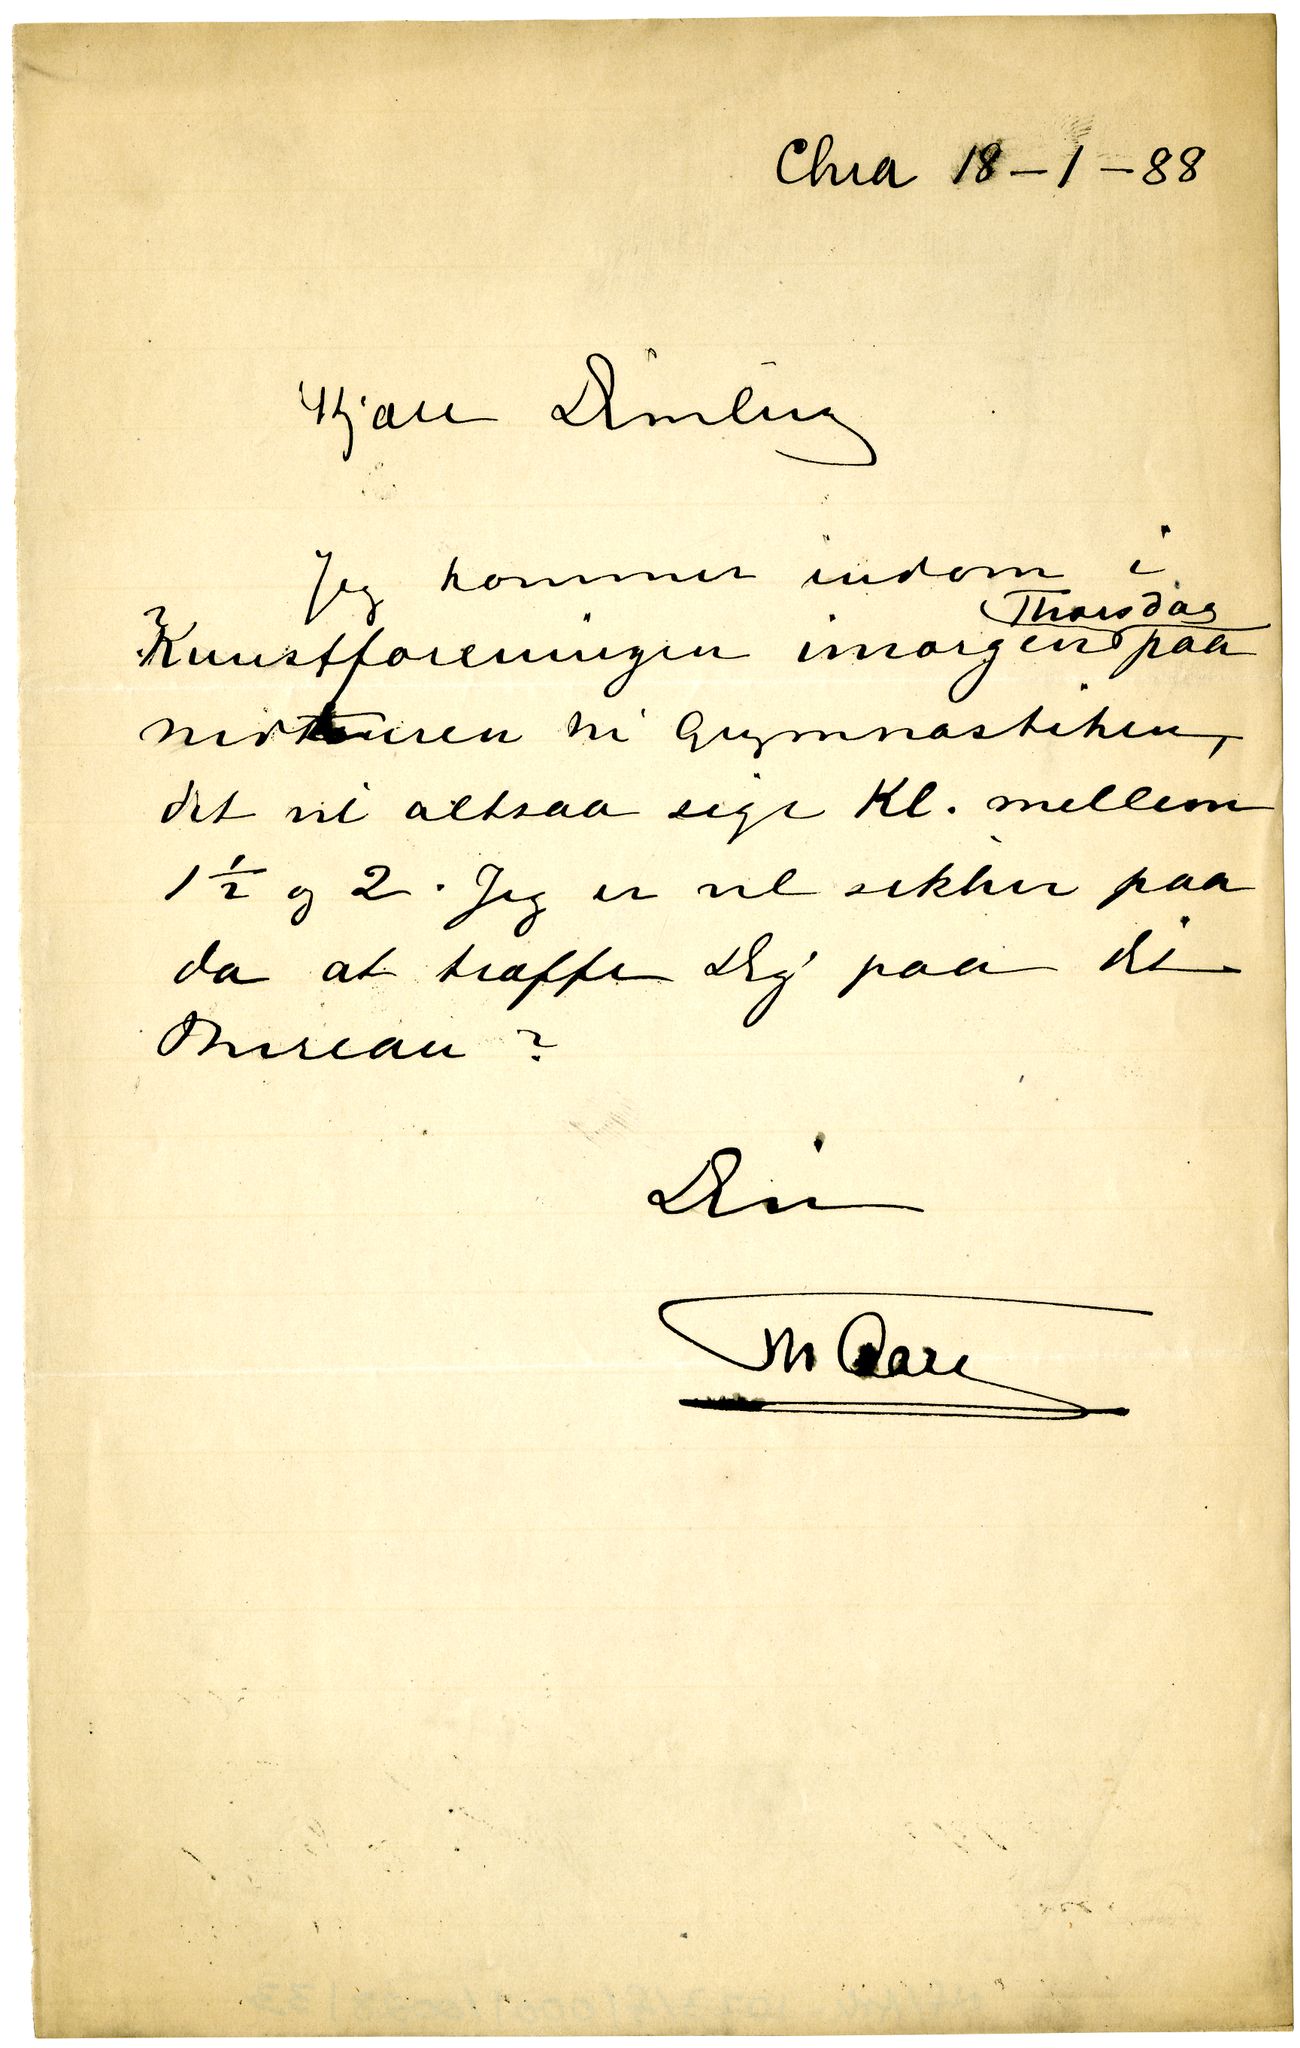 Chra 18-1-88
Kjære Dimling
Jeg kommer indom i
Kunstforeningen imorgen Thorsdag paa
nedturen til Gymnastiken,
det vil altsaa sige Kl. mellem
1½ og 2. Jeg er vel sikker paa
da at træffe Dig paa dit
Bureau?
Din